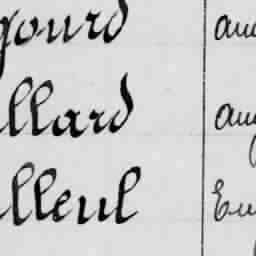 gourd au
llard aug
lleul Eu